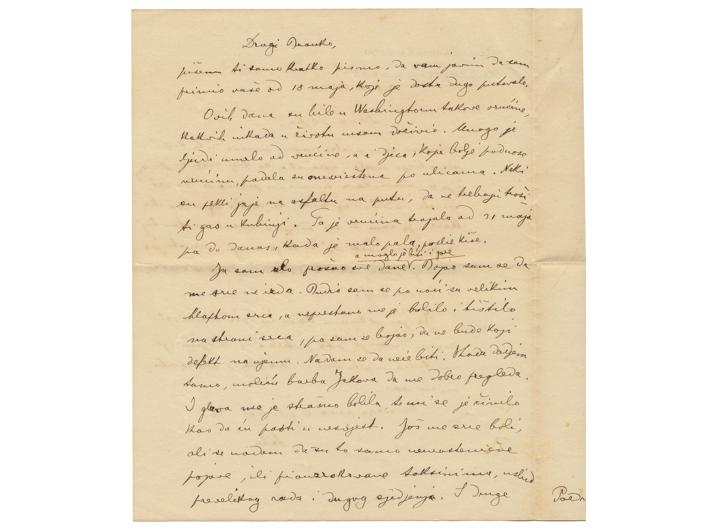 Dragi Branko,
pišem ti samo kratko pismo, da vam javim da sam
primio vaše od 18 maja, koje je dosta dugo putovalo.
Ovih dana su bile u Washingtonu takove vrućine,
kakvih nikada u životu nisam doživio. Mnogo je
ljudi umrlo od vrućine, a i djeca, koja bolje podnose
vrućinu, padala su onesviještena po ulicama. Neki
su pekli jaje na asfaltu na putu, da ne trebaju troši
ti gas u kuhinji. Ta je vrućina trajala od 31 maja
pa do danas, kada je malo pala, poslie kiše.
a moglo je biti i gore
Ja sam zlo prošao ove dane. Bojao sam se da
me srce ne izda. Budio sam se po noći sa velikim
klaftom srca, a neprestano me je bolilo i tištilo
na strani srca, pa sam se bojao, da ne bude koji
defekt na njemu. Nadam se da neće biti. Kada dodjem
tamo, moliću barba Jakova da me dobro pregleda.
I glava me je strašno bolila te mi se je činilo
kao da ću pasti u nesvijest. Još me srce boli,
ali se nadam da su to samo neurastenične
pojave, ili prouzrokovane toksinima, uslied
prevelikog rada i dugog sjedjenja. I druge